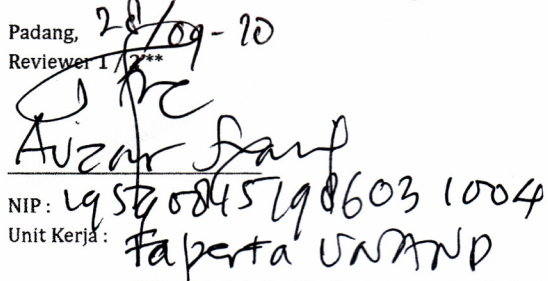 Padang, 28/09-20
Reviewer 1 / 2**
Aizar Syarif
NIP : 195408451986031004
Unit Kerja : Faperta UNAND